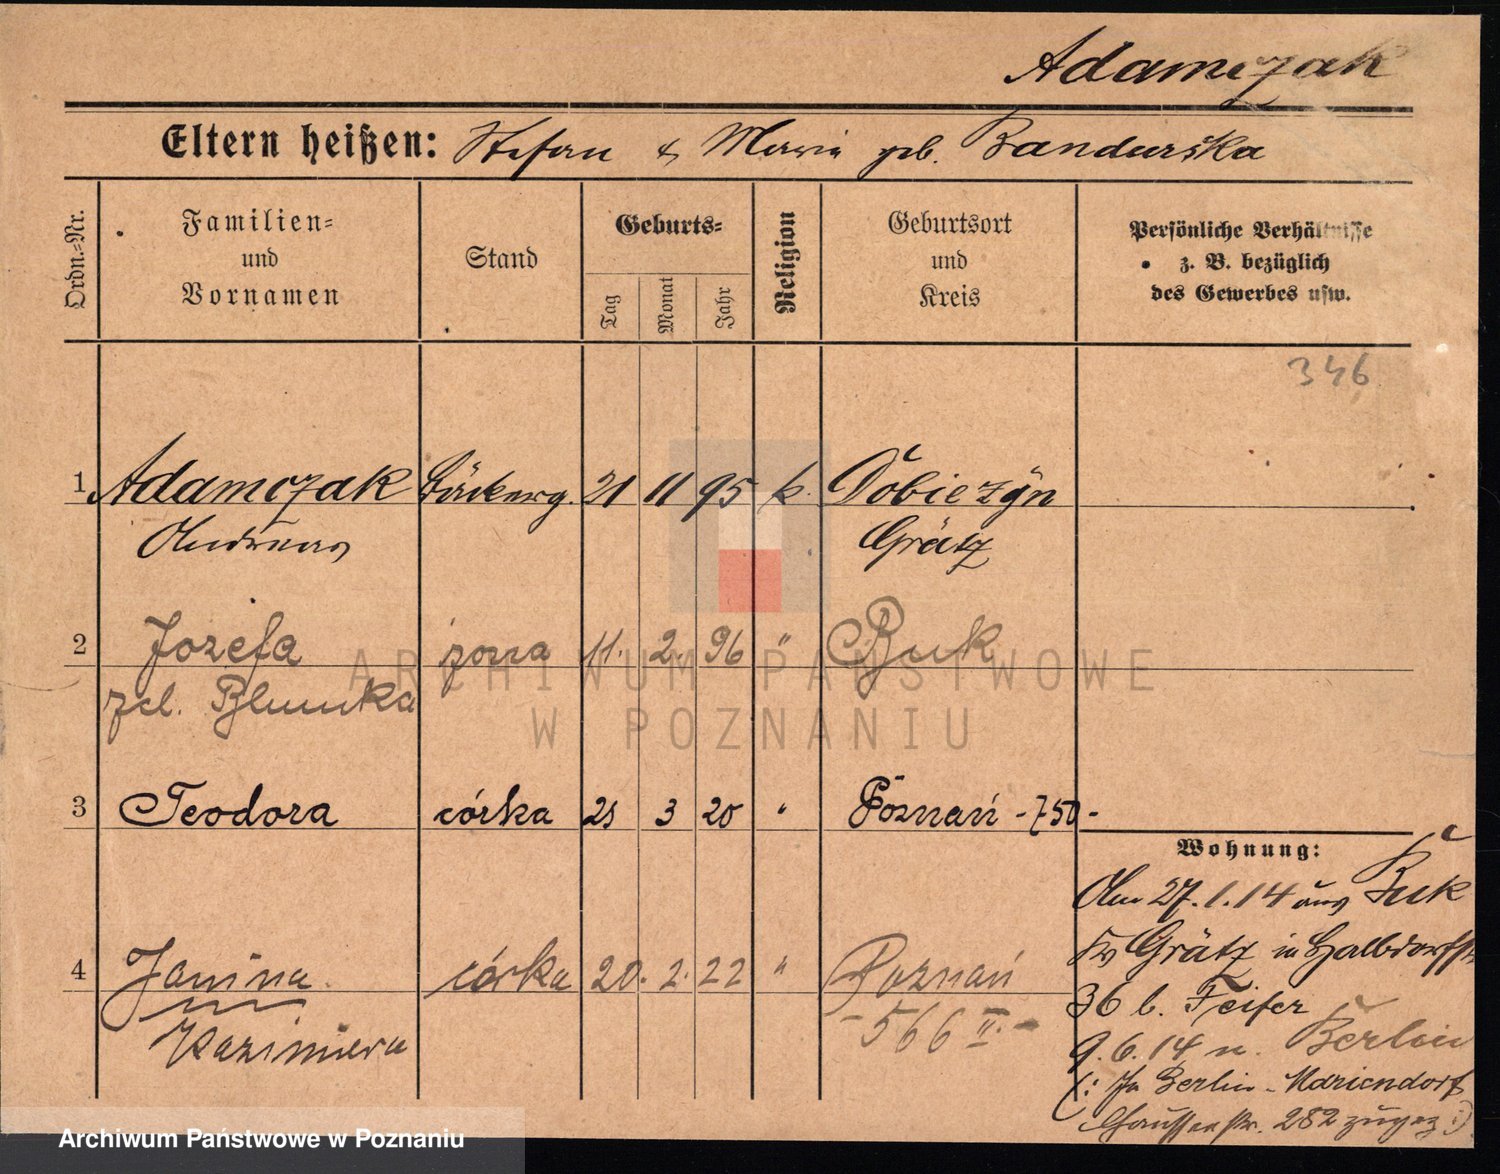 Adamczak
Eltern heißen: Stefan & Marie geb. Bandurska
Ordn.-Nr.
Familien-
und
Vornamen
Stand
Geburts-
Tag
Monat
Jahr
Religion
Geburtsort
und
Kreis
Persönliche Verhältnisse
z. B. bezüglich
des Gewerbes usw.
346
1 Adamczak Bäckerg. 21 11 95 k. Dobiezyn
Andreas Grätz
2 Józefa żona 11. 2. 96 " Buk
zd. Blumka
3 Teodora córka 21 3 20 " Poznań - 750 -
Wohnung:
Am 27.1.14 aus Buk
Kr Grätz in Halbdorfstr
36 b. Feifer
4 Janina córka 20. 2. 22 " Poznań
Kazimiera - 566 II. -
9.6.14 n. Berlin
(: In Berlin-Mariendorf
Chausseestr. 282 zugez :)
ARCHIWUM PAŃSTWOWE
W POZNANIU
Archiwum Państwowe w Poznaniu